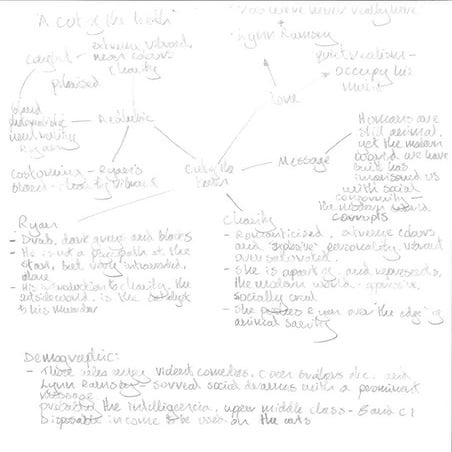 "A cut of the
"You were never really here"
+
Lynn Ramsay
extreme vibrant
neon colours
Charity
caught
pleased
bland
neutrality
Ryan
Aesthetic
Love
Quiet realism -
occupy his
Costuming - Ryan's
bland - charity vibrant
Cut of the
Message
Humans are
still animal,
yet the modern
world we have
built has
us
with social
conformity -
the modern world
corrupts
Ryan
- Drab, dark greys and blacks
- He is not a psychopath at the
start, but very introverted,
alone
- His introduction to charity, the
outside world, is the catalyst
to his murder
Charity
- Romanticised, extreme colours,
and explosive personality, vibrant
over saturated.
- She is a part of, and represents,
the modern world - oppressive,
socially cruel
- She pushes Ryan over the edge of
animal
Demographic:
- Those who enjoy violent comedies, Coen brothers etc. and
Lynn Ramsay - surreal social dramas with a prominent
message
the intelligencia, upper middle class - B and C1
Disposable income to be used on the arts